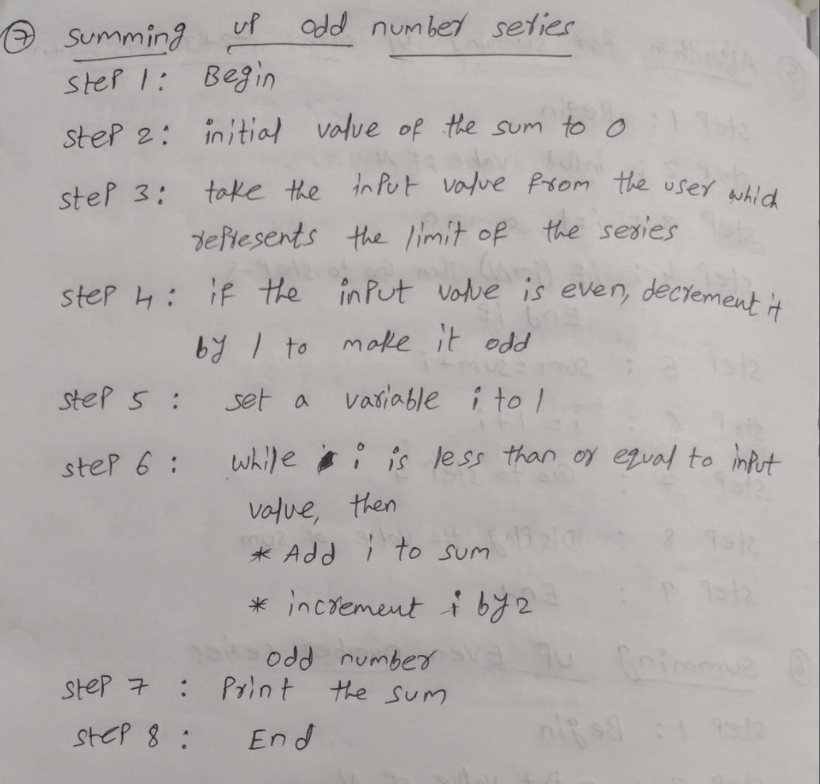 ⑦ summing up odd number series
step 1: Begin
step 2: initial value of the sum to 0
step 3: take the input value from the user which
represents the limit of the series
step 4: if the input value is even, decrement it
by 1 to make it odd
step 5: set a variable i to 1
step 6: while i is less than or equal to input
value, then
* Add i to sum
* increment i by 2
odd number
step 7: Print the sum
step 8: End